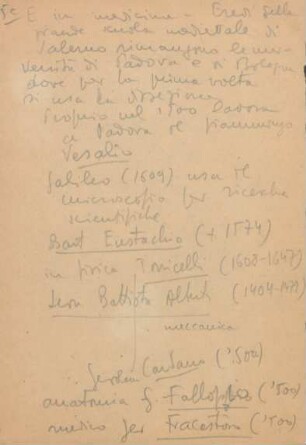 5c E in medicina - Eredi della
grande scuola medievale di
Salerno rimangono le uni-
versità di Padova e di Bologna
dove per la prima volta
si usa la dissezione
Proprio nel '500 lavora
a Padova il fiammingo
Vesalio
Galileo (1609) usa il
microscopio per ricerche
scientifiche
Bart Eustachio († 1574)
in fisica Torricelli (1608-1647)
Leon Battista Alberti (1404-1472)
meccanica
Gerolamo Cardano ('500)
anatomia G. Falloppio ('500)
medico Ger Fracastoro ('500)